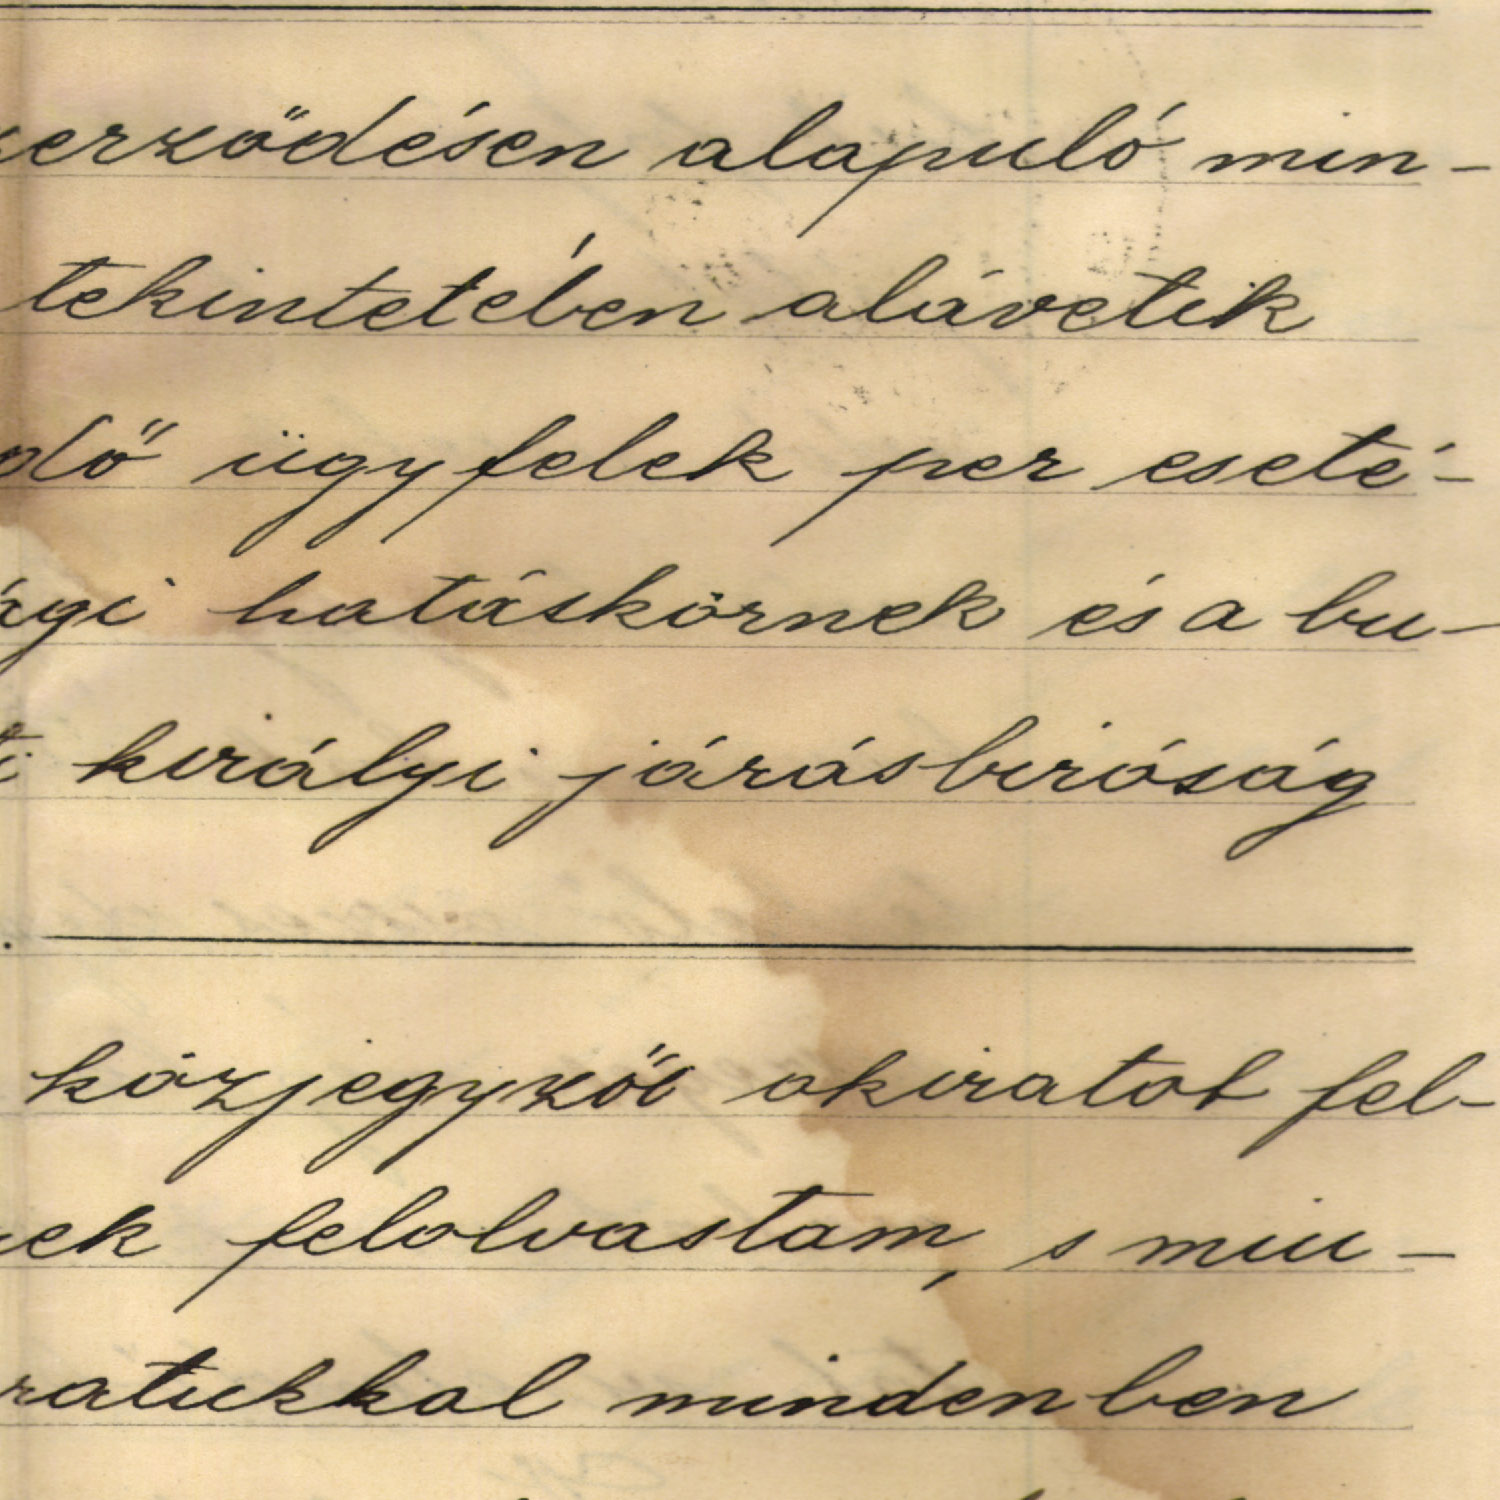 zerződésen alapuló min-
tekintetében alávetik
dő ügyfelek per eseté-
ági hatáskörnek és a bu-
ti királyi járásbiróság
közjegyzői okiratot fel-
ek felolvastam, s miu-
ratukkal mindenben